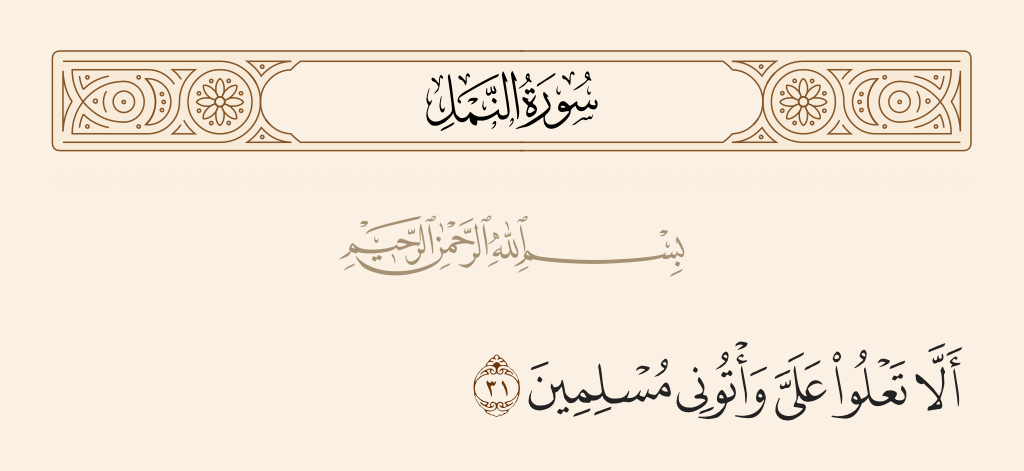 سُورَةُ النَّمْلِ
بِسْمِ ٱللَّهِ ٱلرَّحْمَٰنِ ٱلرَّحِيمِ
أَلَّا تَعْلُوا۟ عَلَىَّ وَأْتُونِى مُسْلِمِينَ ٣١